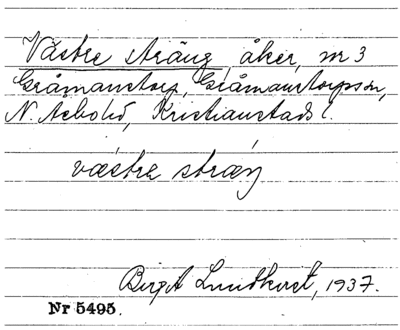 Västre sträng, åker, nr 3
Gråmanstorp, Gråmanstorpssn,
N. Åsbohd, Kristianstads l.
væstre stræŋ
Birgit Lundkvist, 1937.
Nr 5495.